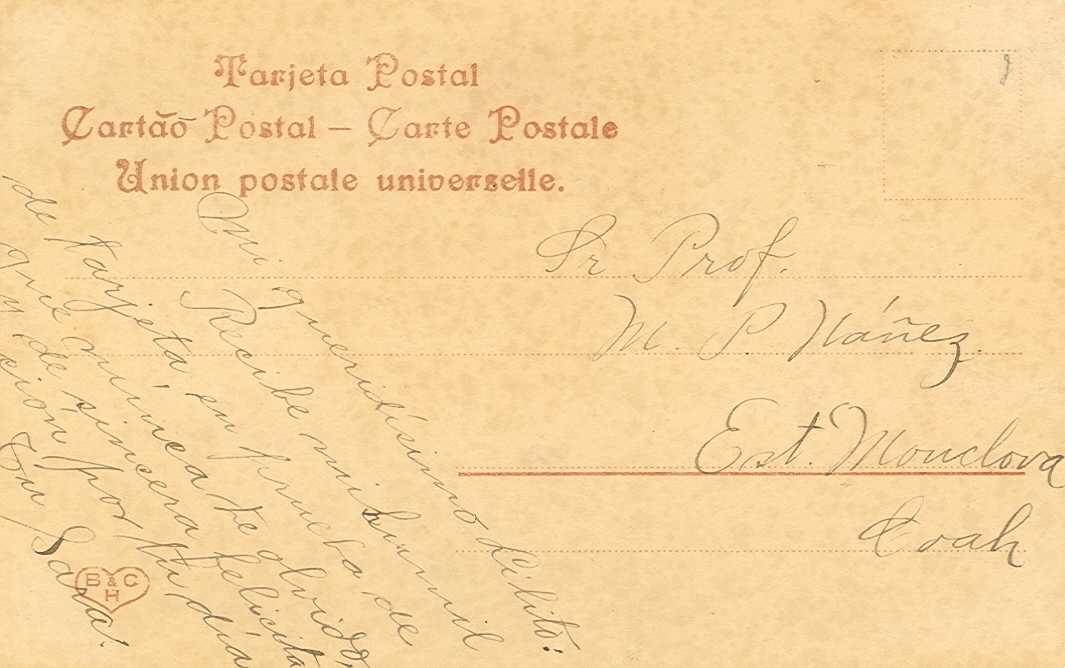 Tarjeta Postal
Cartão Postal — Carte Postale
Union postale universelle.
Sr Prof.
M. P. Náñez
Est. Monclova
Coah
Mi queridísimo Lilito:
Recibe mi humil
de tarjeta, en prueba de
que nunca te olvido,
y de sincera felicita
ción por tu día
Tu Sara.
B & C
H